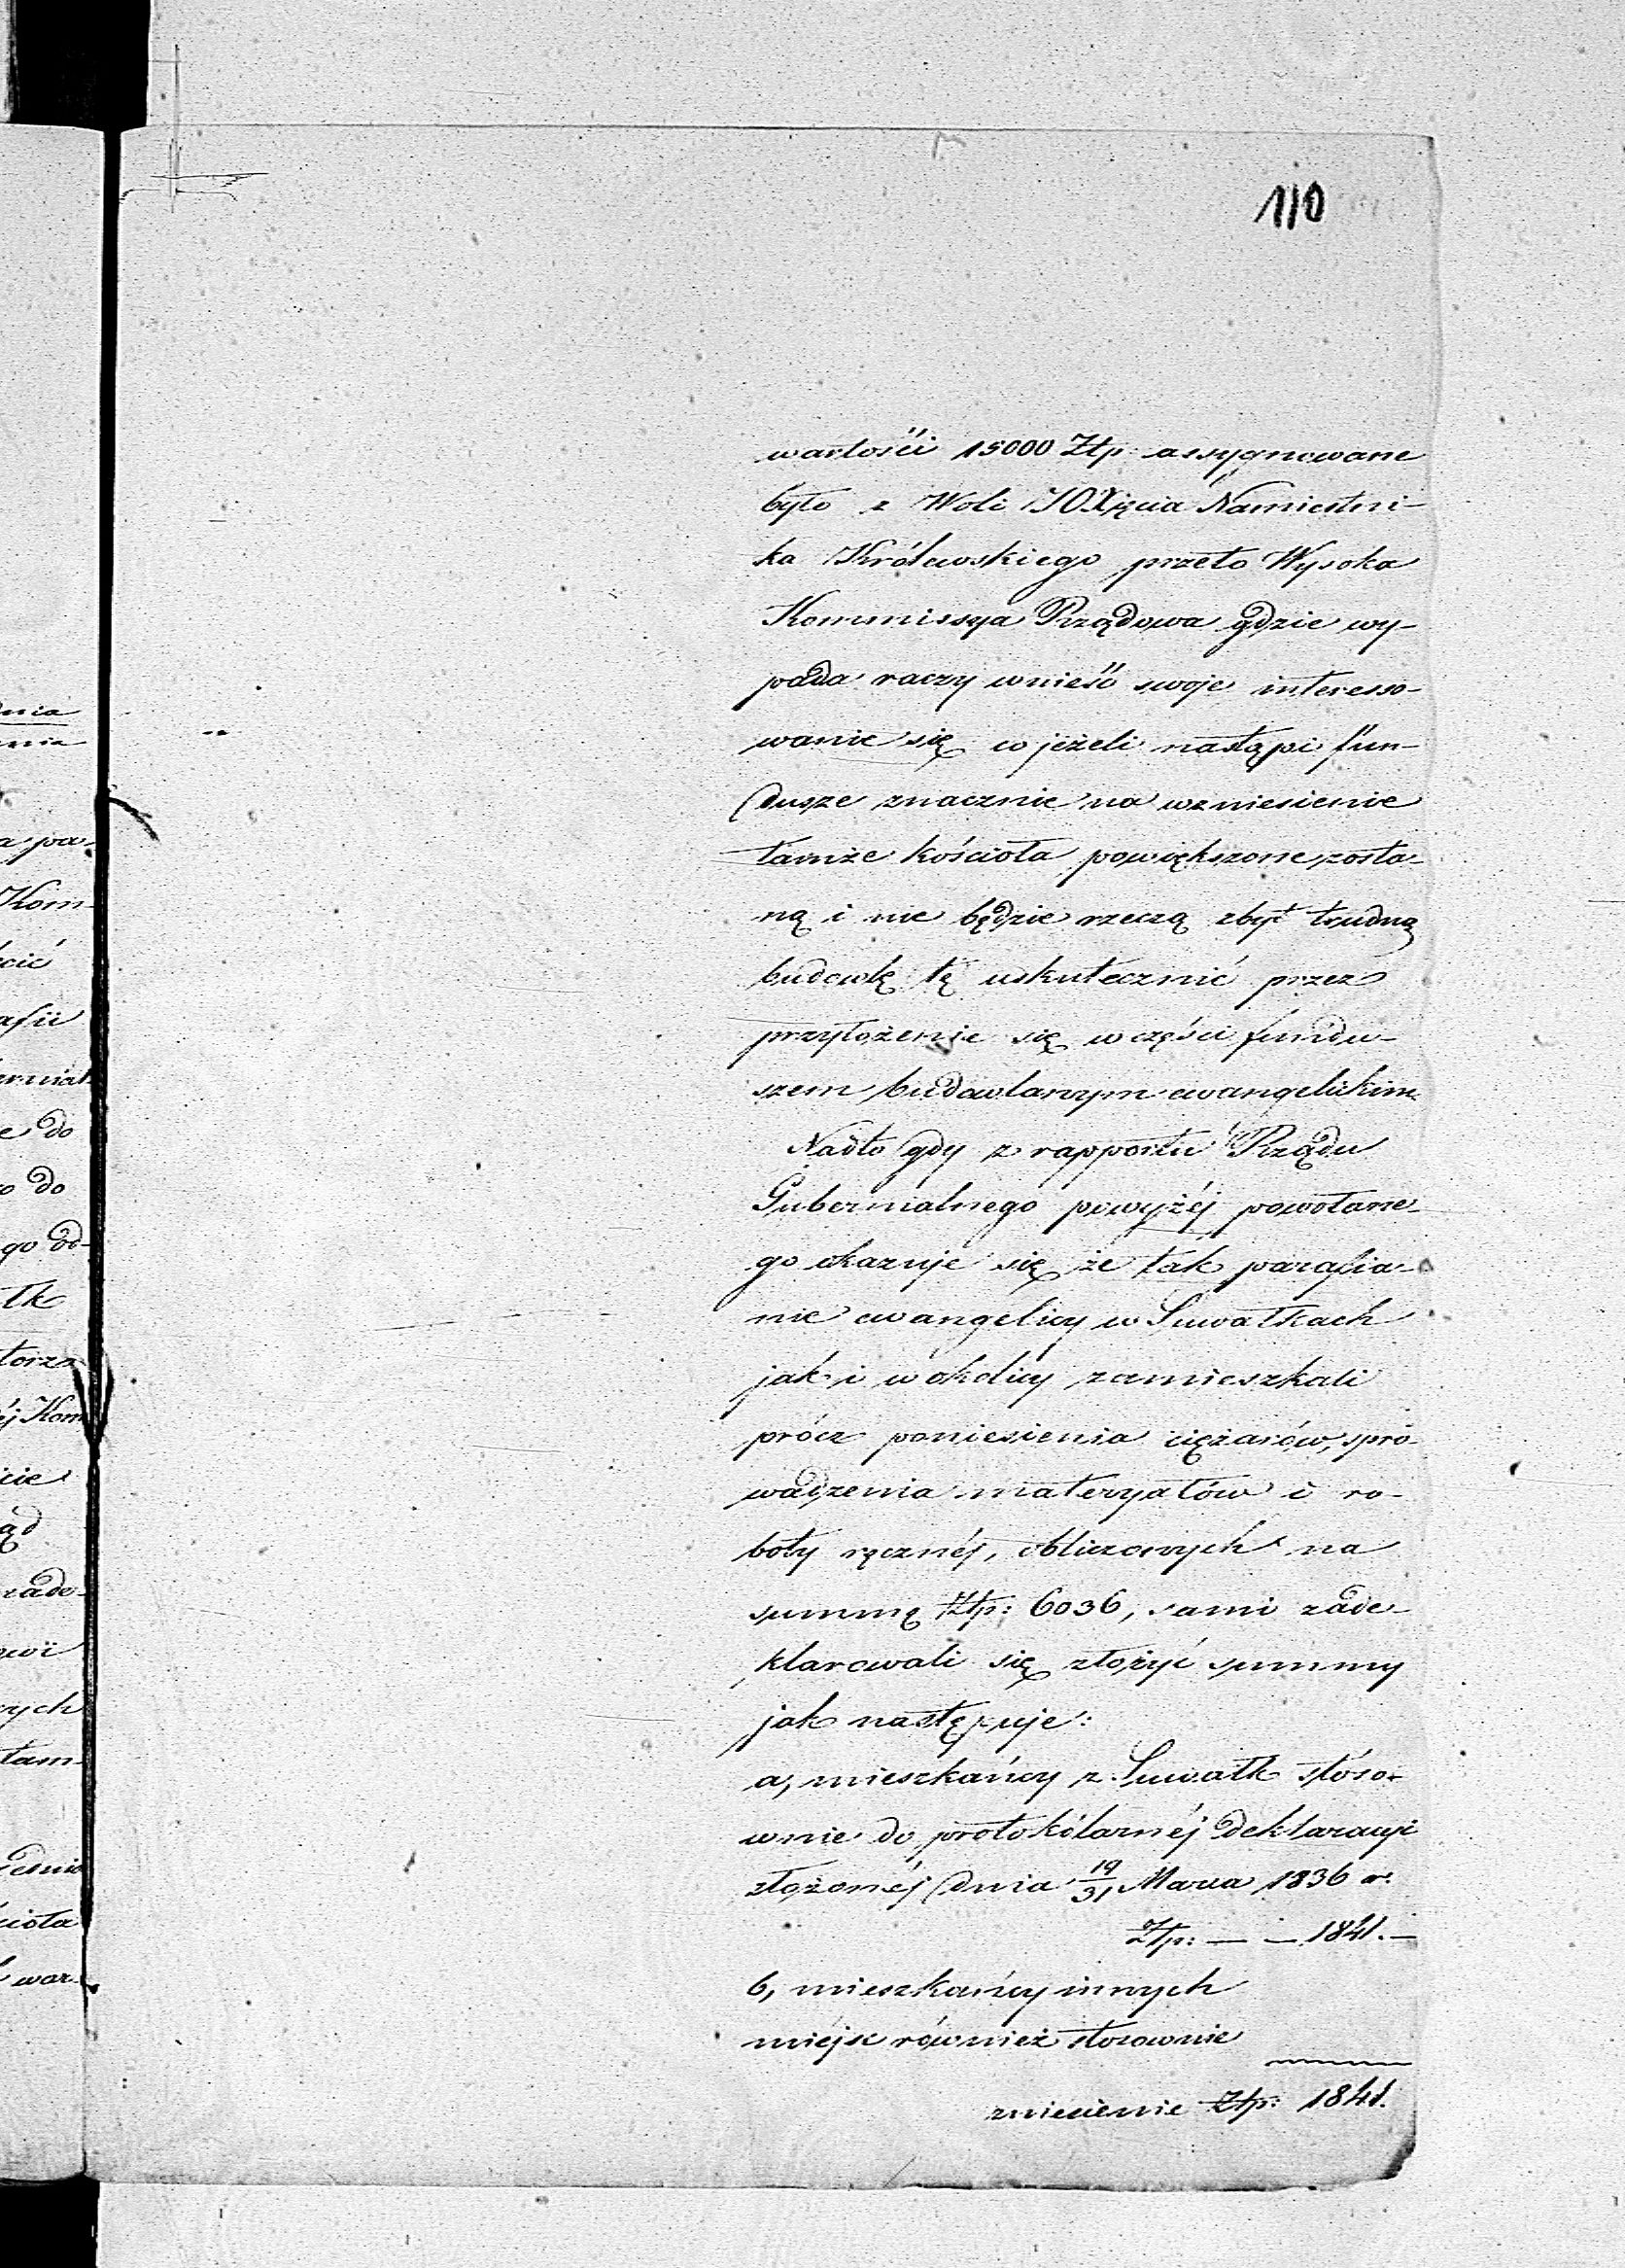 110
wartości 15000 Złp: assygnowane
było z Woli JOXięcia Namiestni-
ka Królewskiego przeto Wysoka
Kommissya Rządowa gdzie wy-
pada raczy wnieść swoje interesso-
wanie się co jeżeli nastąpi fun-
dusze znacznie na wzniesienie
tamże kościoła powiększone zosta-
ną i nie będzie rzeczą zbyt trudną
budowlę tę uskutecznić przez
przyłożenie się w części fundu-
szem budowlanym ewangelickim.
Nadto gdy z rapportu Rządu
Gubernialnego powyżéj powołane-
go okazuje się że tak parafia-
nie ewangelicy w Suwałkach
jak i w okolicy zamieszkali
prócz poniesienia ciężarów, spro-
wadzenia materyałów i ro-
boty ręcznéj, obliczonych na
summę Złp: 6036, sami zade-
klarowali się złożyć summy
jak następuje:
a, mieszkańcy z Suwałk stóso-
wnie do protokólarnéj deklaracyi
złożonéj dnia 19/31 Marca 1836 r.
Złp: — — 1841. —
b, mieszkańcy innych
miéjsc również stosownie
zniesienie Złp: 1841.